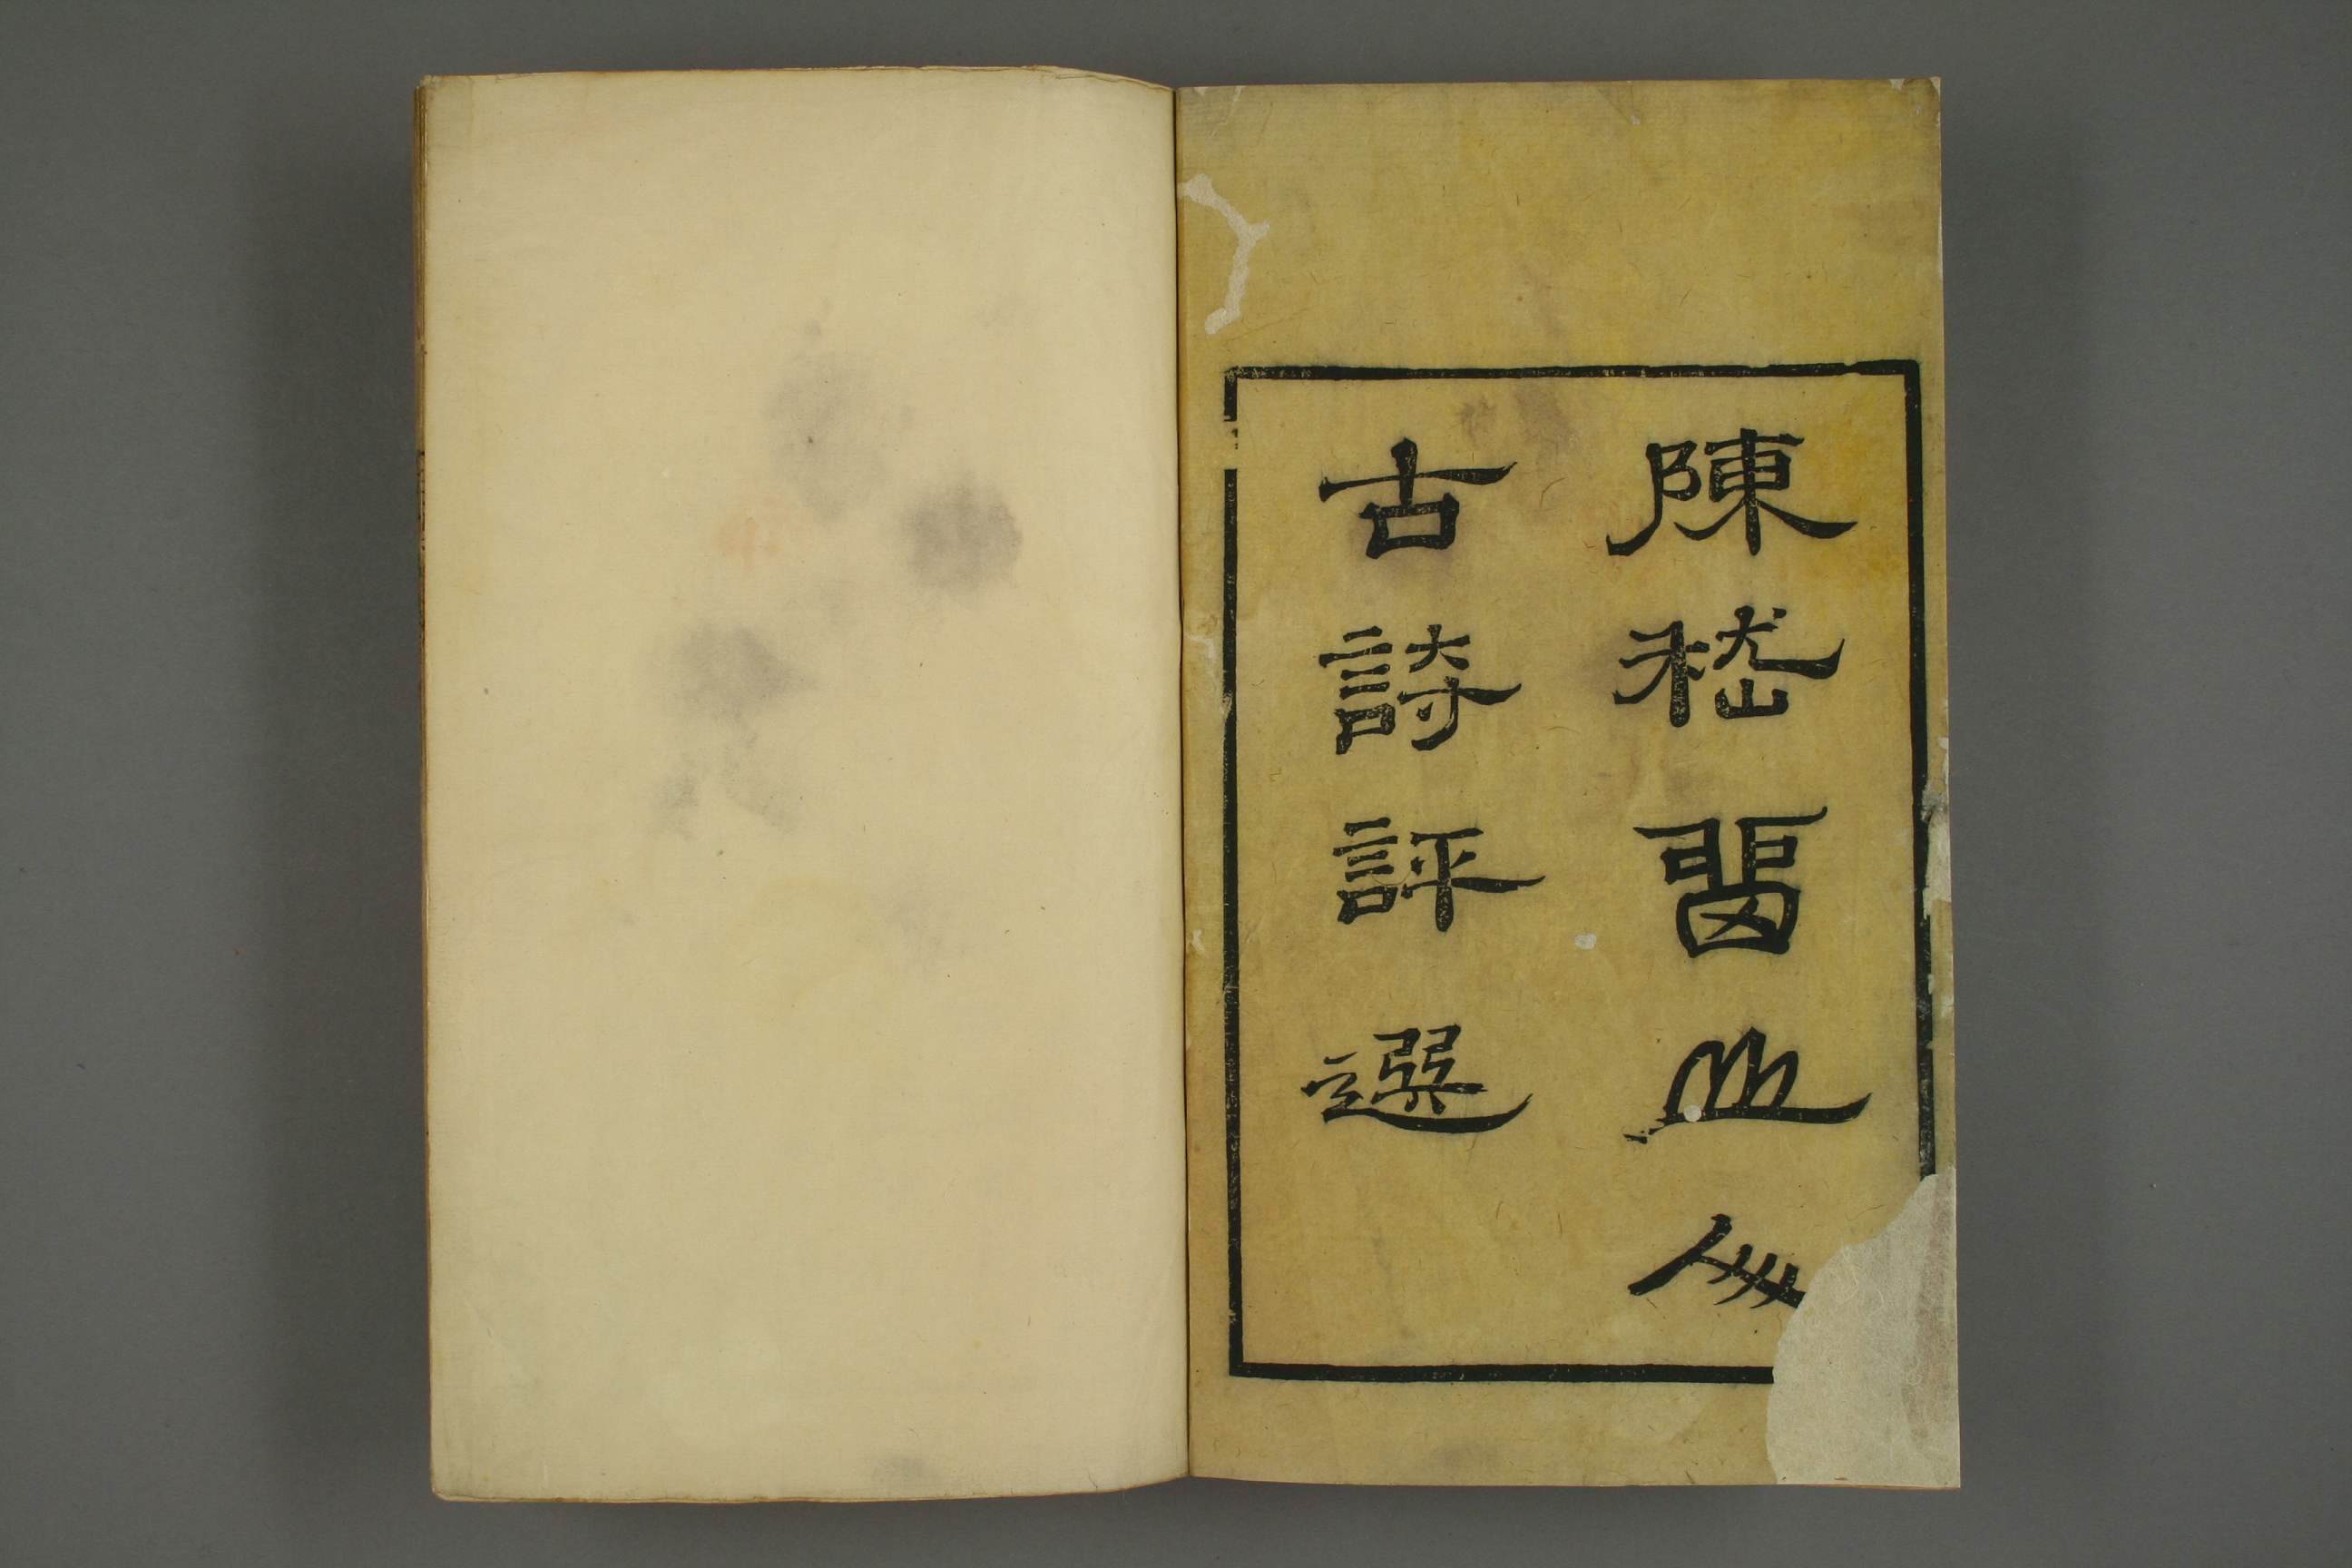 陳嵇留山人
古詩評選